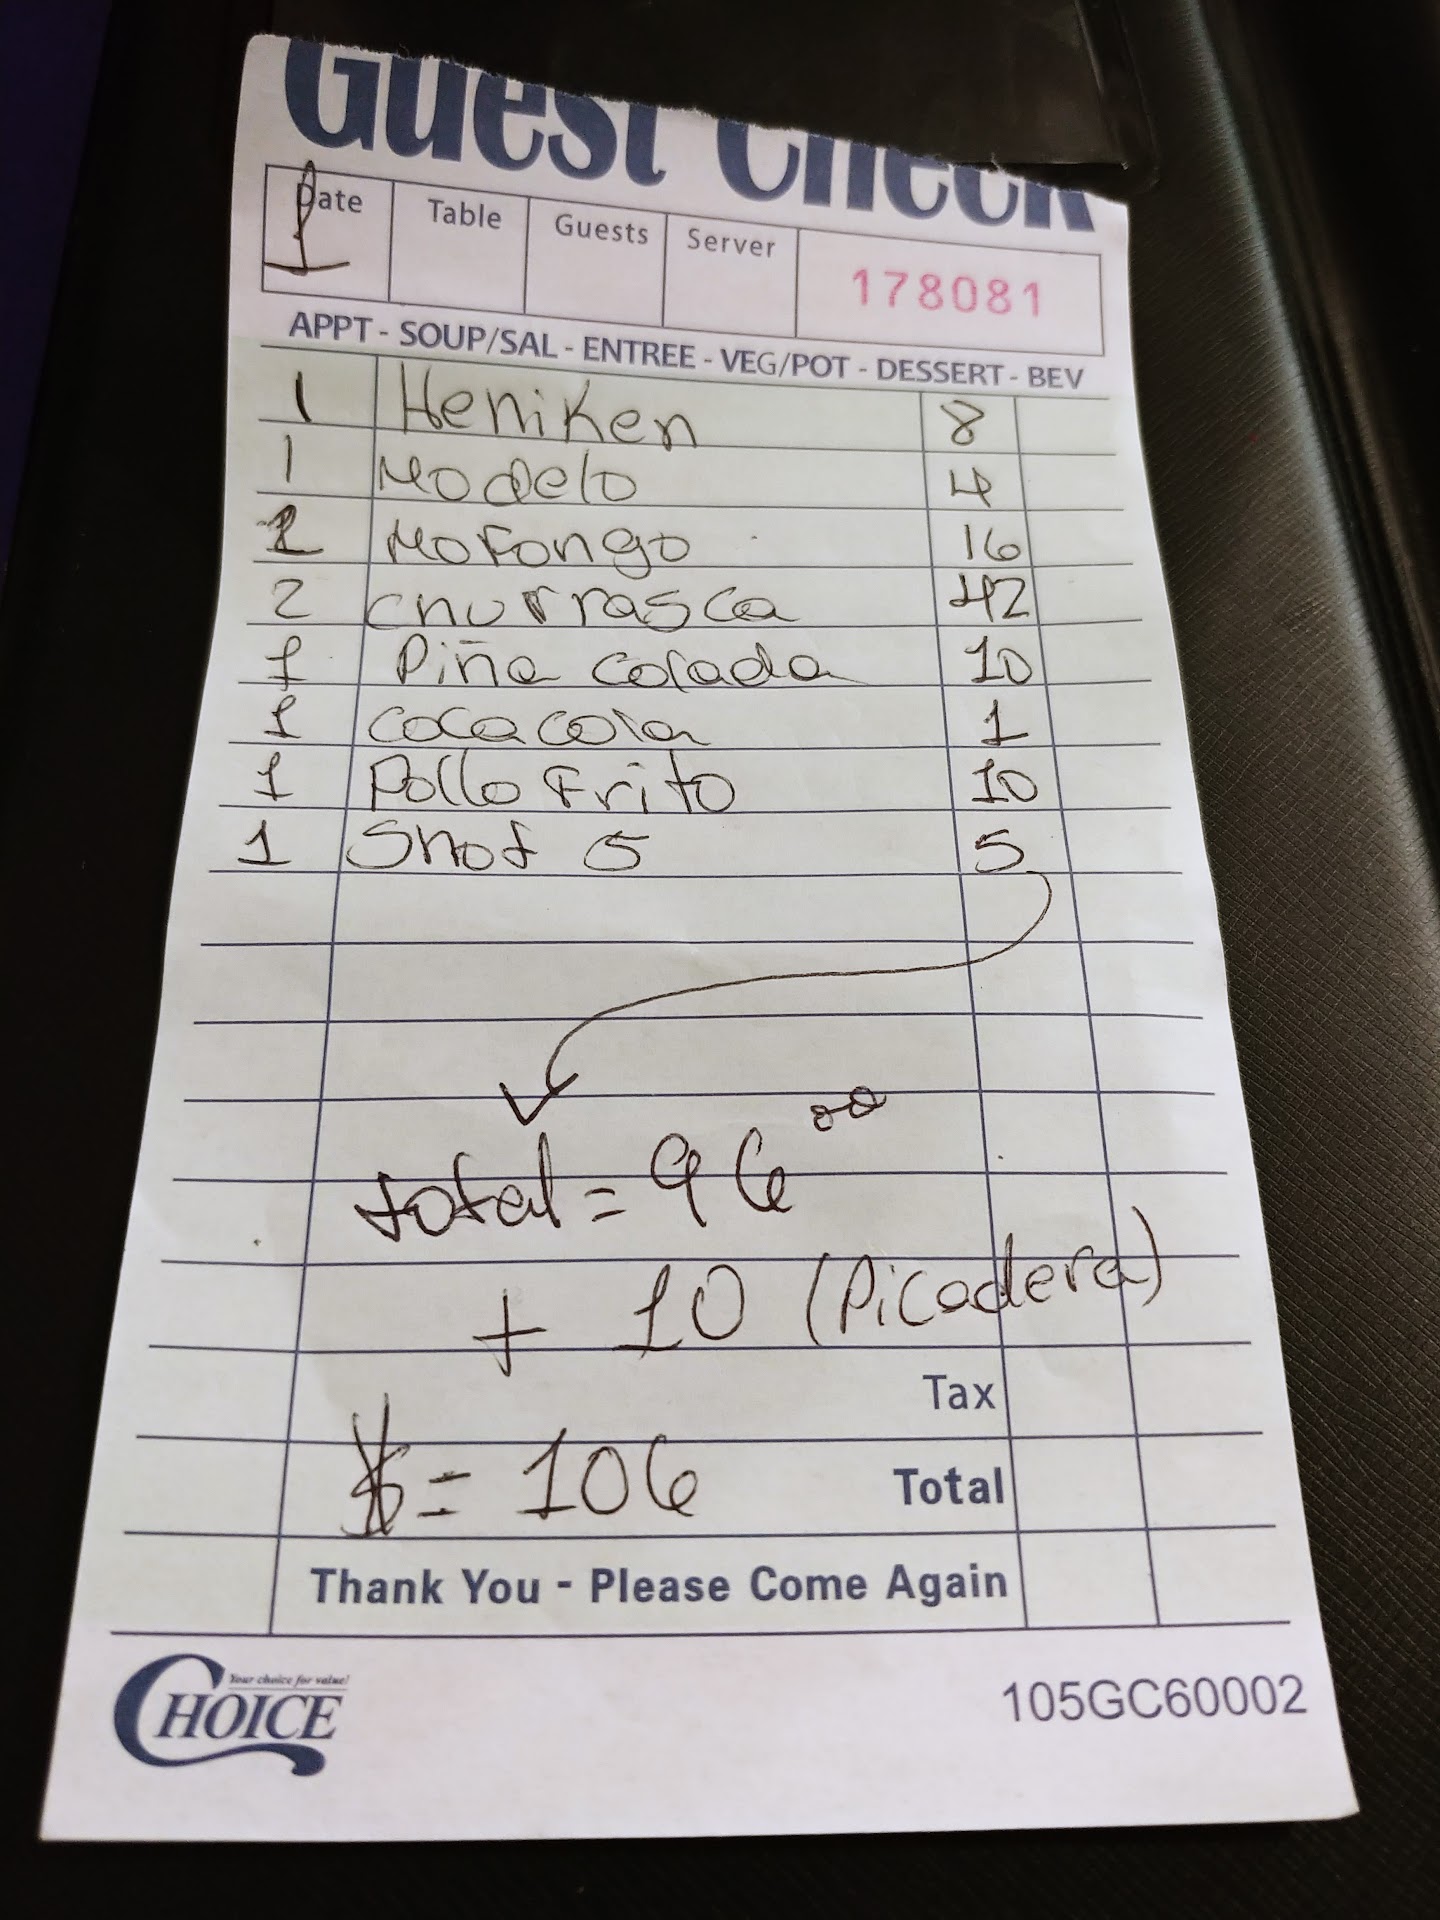 Guest Check
Date Table Guests Server 178081
1
APPT - SOUP/SAL - ENTREE - VEG/POT - DESSERT - BEV
1 Heniken 8
1 Modelo 4
1 Mofongo 16
2 churrasca 42
1 Piña Colada 10
1 coca cola 1
1 Pollo Frito 10
1 Shot 5 5
total = 96 00
+ 10 (Picadera)
Tax
$ = 106 Total
Thank You - Please Come Again
Your choice for value!
CHOICE
105GC60002